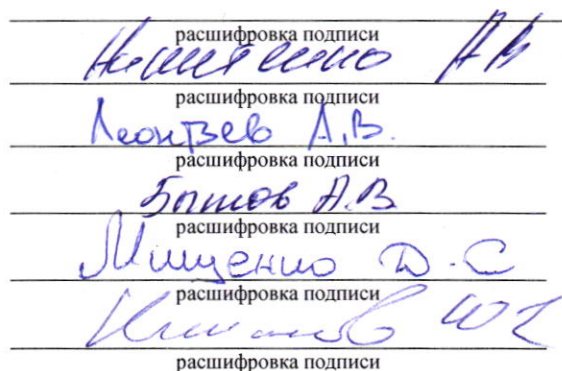 расшифровка подписи
Никитенко АВ
расшифровка подписи
Леонтьев А.В.
расшифровка подписи
А.В.
расшифровка подписи
Мищенко Д.С
расшифровка подписи
расшифровка подписи